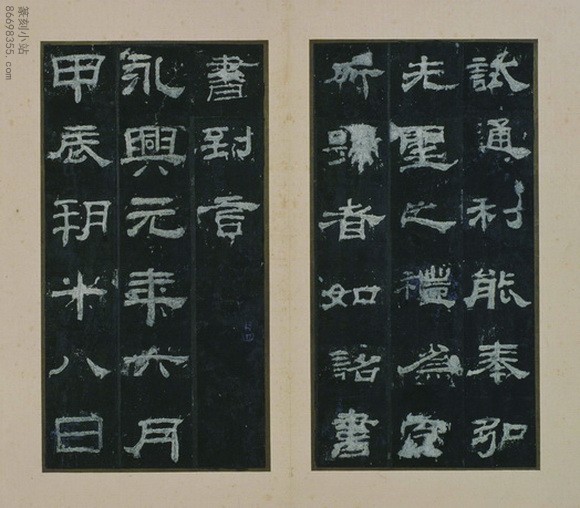 試通利能奉弘
先聖之禮為宗
所歸者如詔書
書到言
永興元年六月
甲辰朔十八日
篆刻小站
86698355.com